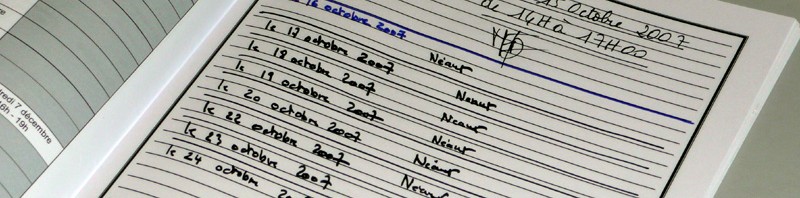 15 Octobre 2007
de 14H à 17H00
le 16 octobre 2007 Néant
le 17 octobre 2007 Néant
le 18 octobre 2007 Néant
le 19 octobre 2007 Néant
le 20 octobre 2007 Néant
le 22 octobre 2007 Néant
le 23 octobre 2007
le 24 octobre
7 décembre
- 19h